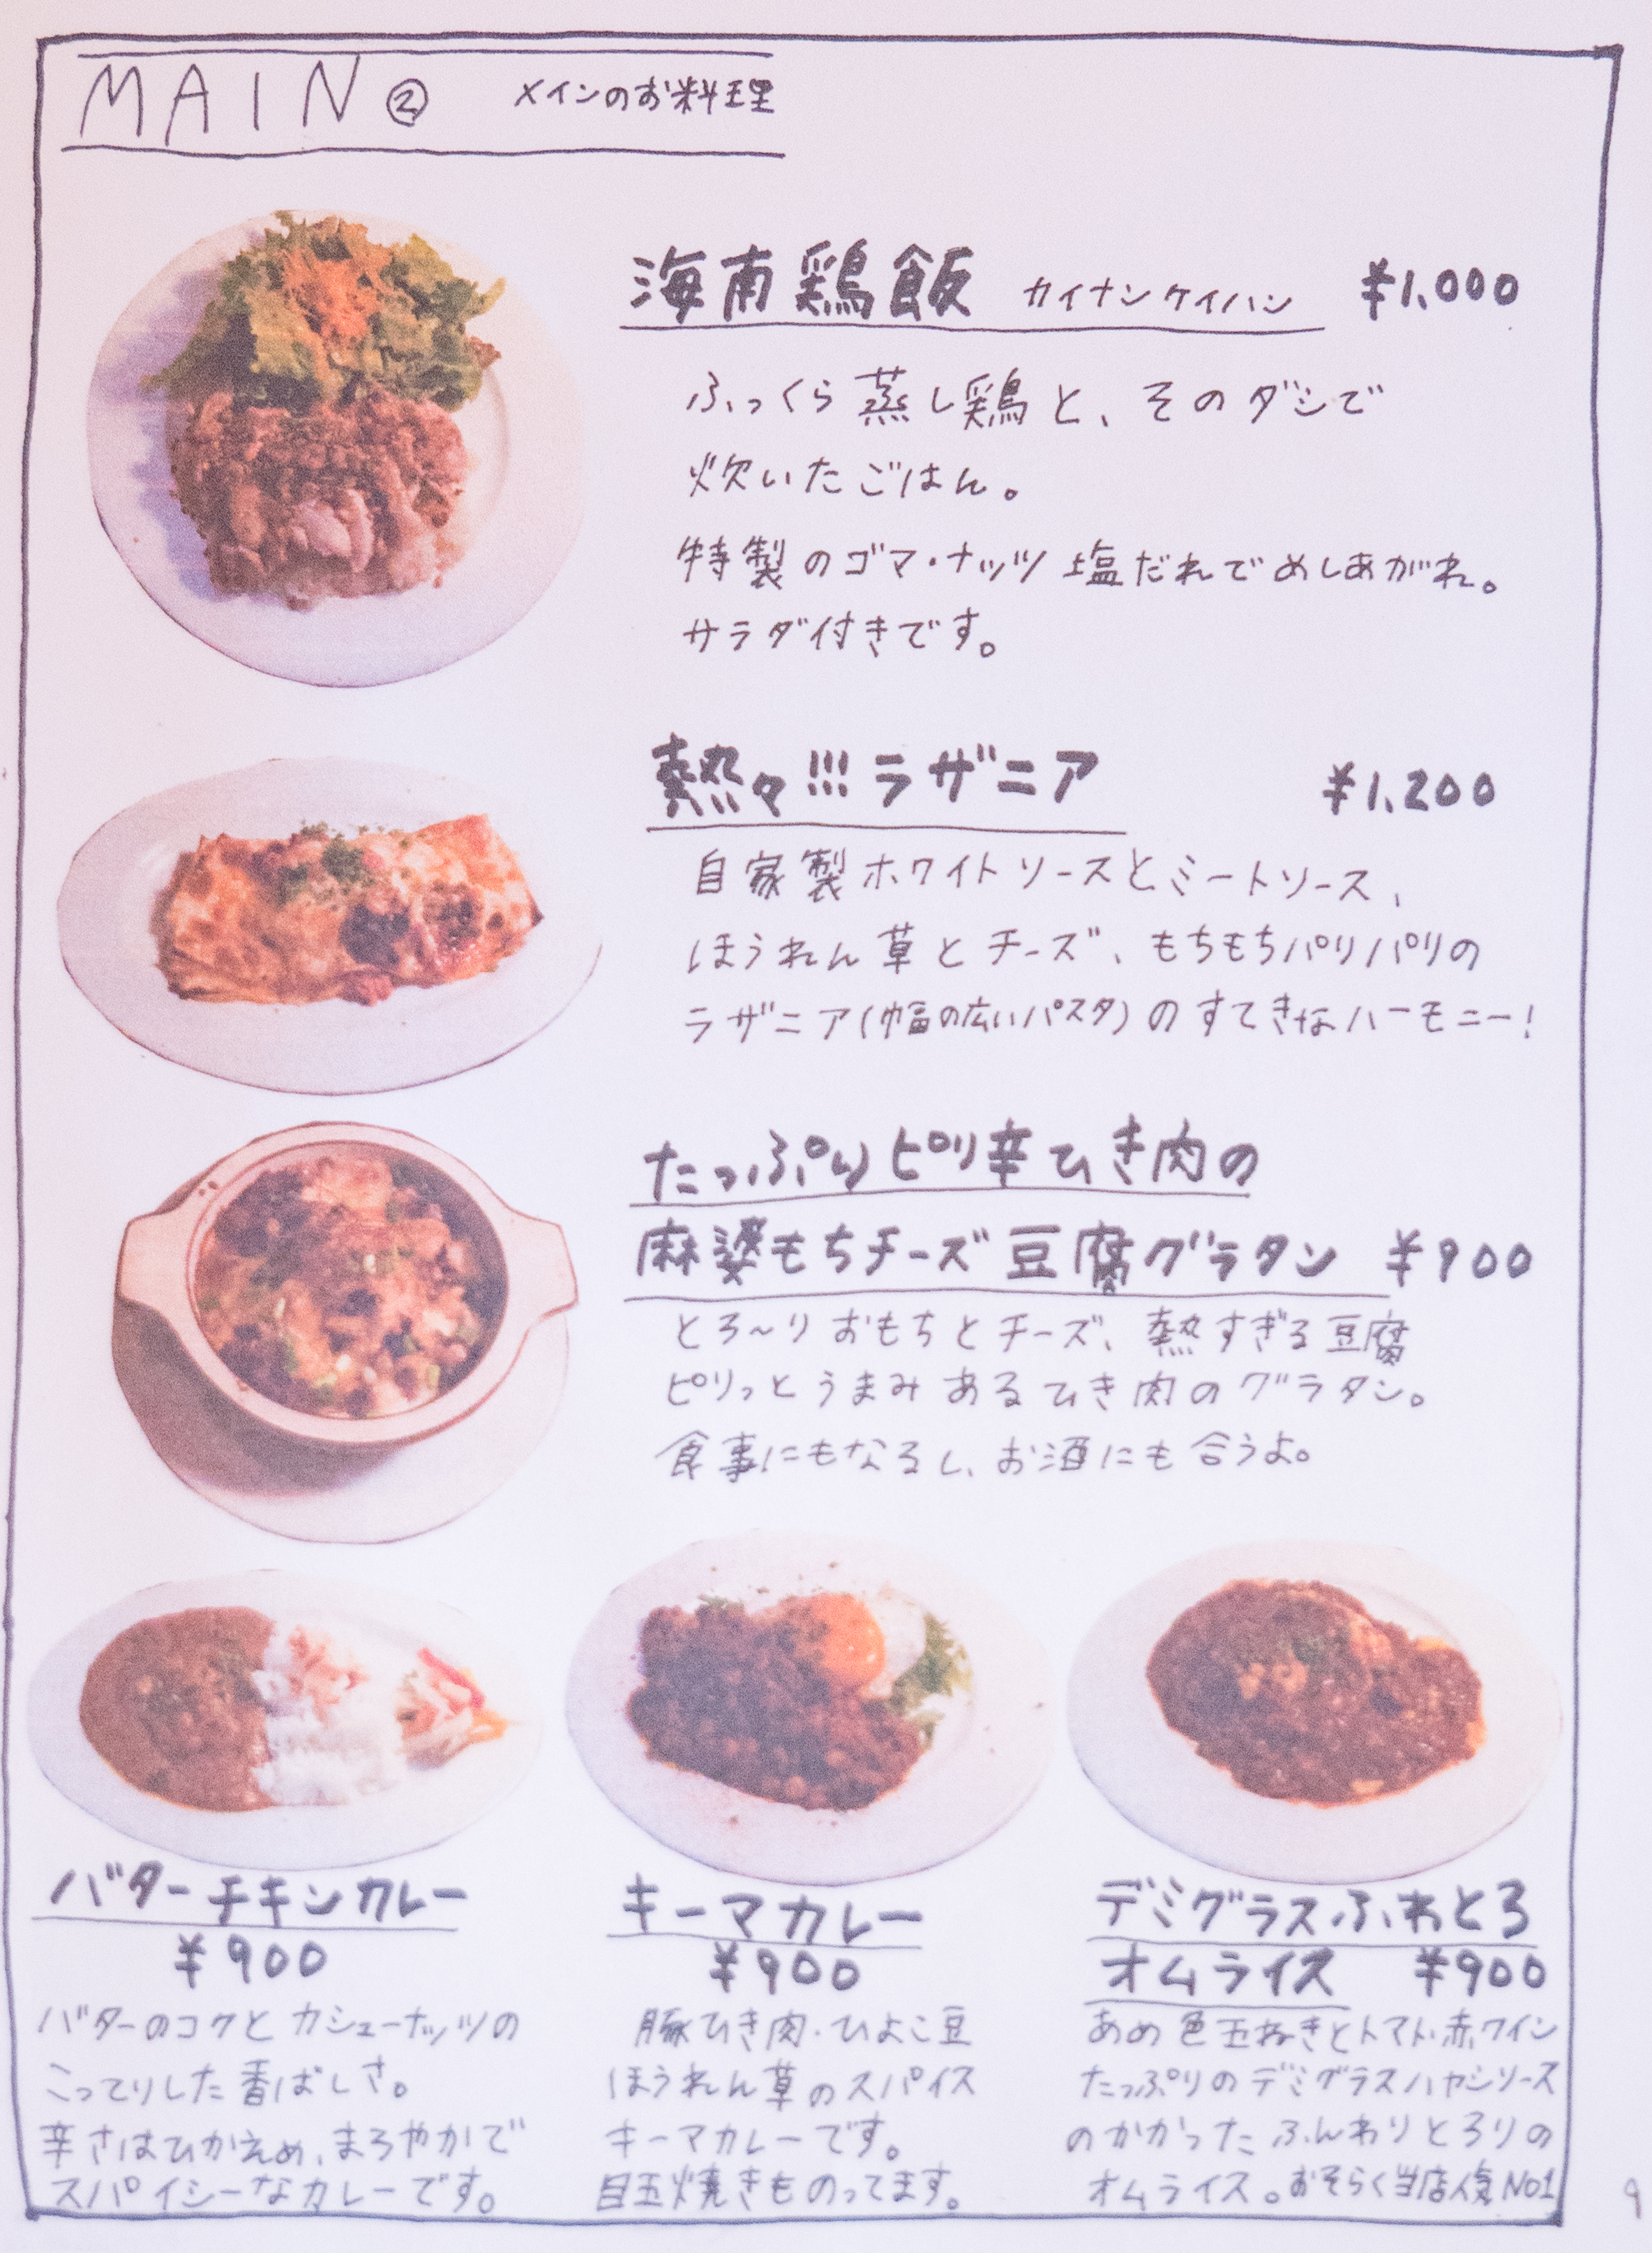 MAIN② メインのお料理
海南鶏飯 カイナンケイハン ¥1,000
ふっくら蒸し鶏と、そのダシで
炊いたごはん。
特製のゴマ・ナッツ塩だれでめしあがれ。
サラダ付きです。
熱々!!!ラザニア ¥1,200
自家製ホワイトソースとミートソース、
ほうれん草とチーズ、もちもちパリパリの
ラザニア(幅の広いパスタ)のすてきなハーモニー!
たっぷりピリ辛ひき肉の
麻婆もちチーズ豆腐グラタン ¥900
とろ～りおもちとチーズ、熱すぎる豆腐
ピリっとうまみあるひき肉のグラタン。
食事にもなるし、お酒にも合うよ。
バターチキンカレー
¥900
バターのコクとカシューナッツの
こってりした香ばしさ。
辛さはひかえめ、まろやかで
スパイシーなカレーです。
キーマカレー
¥900
豚ひき肉・ひよこ豆
ほうれん草のスパイス
キーマカレーです。
目玉焼きものってます。
デミグラスふわとろ
オムライス ¥900
あめ色玉ねぎとトマト・赤ワイン
たっぷりのデミグラスハヤシソース
のかかったふんわりとろりの
オムライス。おそらく当店人気NO1
9